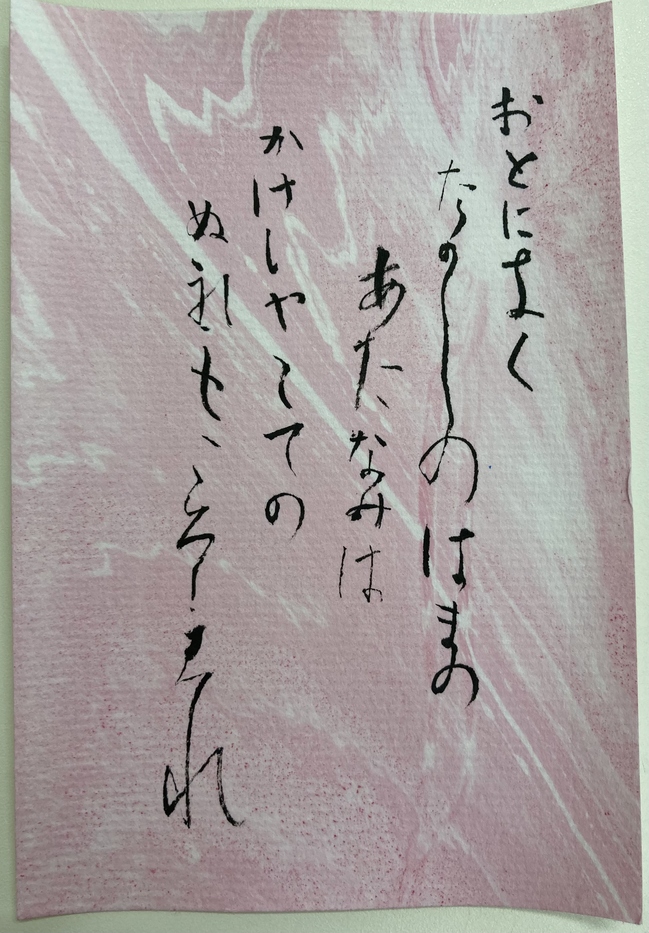 おとにきく
たかしのはまの
あたなみは
かけしやそての
ぬれもこそすれ